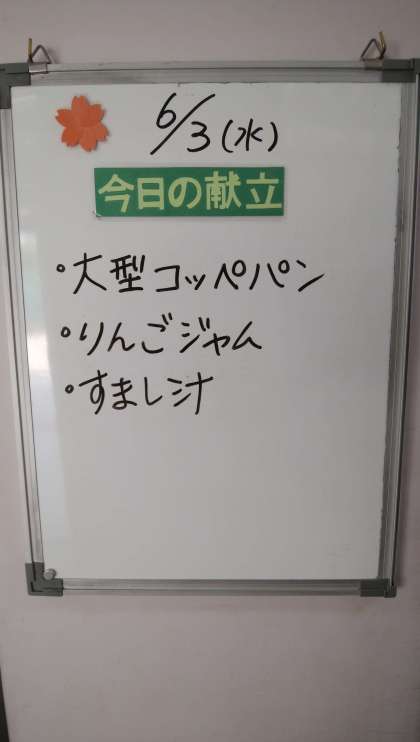 6/3(水)
今日の献立
・大型コッペパン
・りんごジャム
・すまし汁